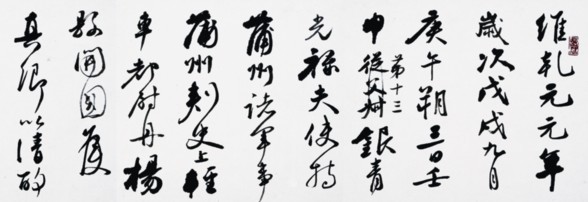 維乾元元年
歲次戊戌九月
庚午朔三日壬
第十三
申從父叔銀青
光祿夫使持
蒲州諸軍事
蒲州刺史上輕
車都尉丹楊
縣開國侯
真卿以清酌